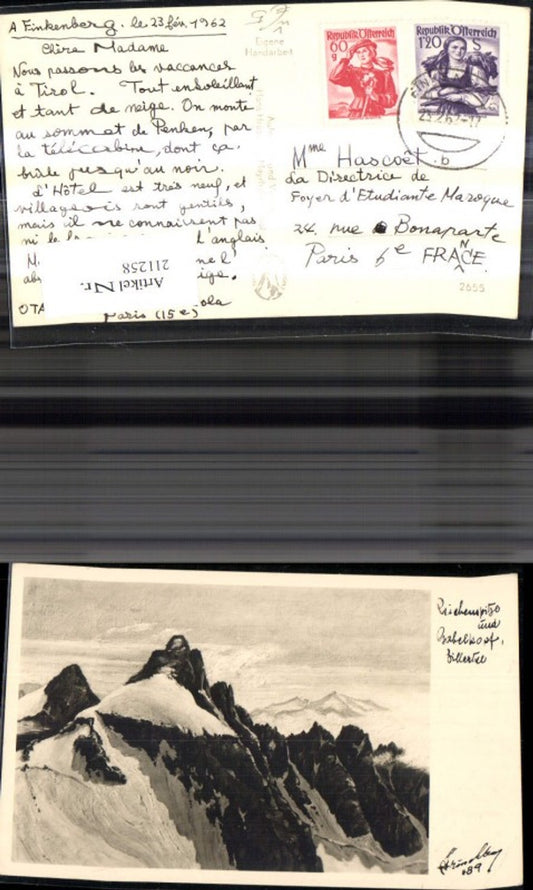 A Finkenberg. le 23 fév. 1962
Chère Madame
Nous passons les vacances
à Tirol. Tout ensoleillant
et tant de neige. On monte
au sommet de Penken, par
la télécabine, dont ça
jusqu'au noir.
L'Hôtel est très neuf, et
villageois sont gentils,
mais il ne connaissent pas
ni le l'anglais.
OTA
Paris (15e)
Eigene
Handarbeit
Artikel Nr.
211258
Republik Österreich
60
g
Republik Österreich
1'20
S
Mme Hascoët.b
La Directrice de
Foyer d'Etudiante Maroque
24, rue Bonaparte
Paris 6e FRANCE.
2655
Reichenspitze
und
Gabelkopf,
Zillertal